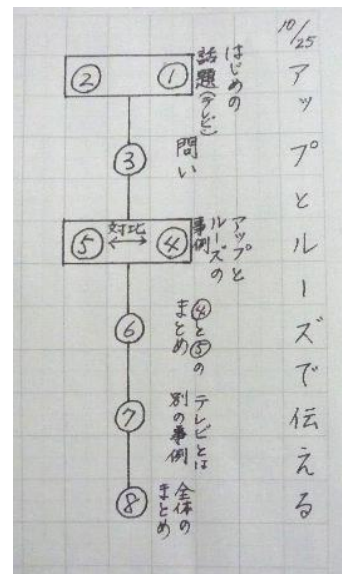 10/25
アップとルーズで伝える
はじめの
話題(テレビ)
① ②
問い
③
アップと
ルーズの
事例
④ 対比 ⑤
④と⑤の
まとめ
⑥
テレビとは
別の事例
⑦
全体の
まとめ
⑧